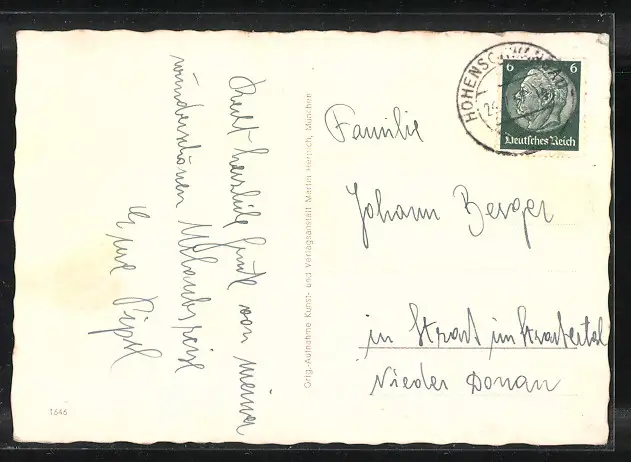 Recht herzliche Grüße von meiner
wunderschönen Urlaubsreise
Orig.-Aufnahme Kunst- und Verlagsanstalt Martin Herpich, München
1646
HOHENSCHWANGAU
24.
6 6
Deutsches Reich
Familie
Johann Berger
in Strass im Strassertal
Nieder Donau